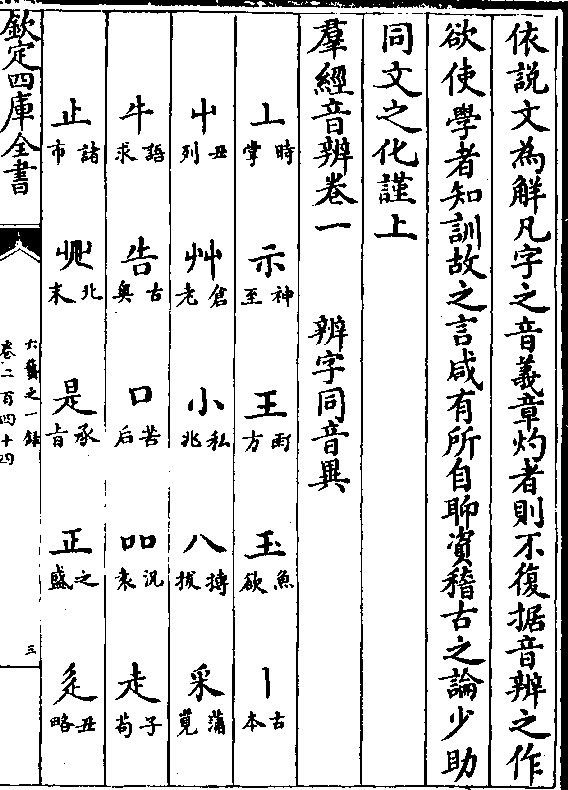 依說文為解凡字之音義章灼者則不復据音辨之作
欲使學者知訓故之言咸有所自聊資稽古之論少助
同文之化謹上
羣經音辨卷一　辨字同音異
丄時掌　示神至　王雨方　玉魚欲　丨古本
屮丑列　艸倉老　小私兆　八搏拔　釆蒲莧
牛語求　告古奥　口苦后　吅況袁　走子苟
止諸市　癶北末　是承旨　正之盛　辵丑略
欽定四庫全書
六藝之一録
卷二百四十四
三